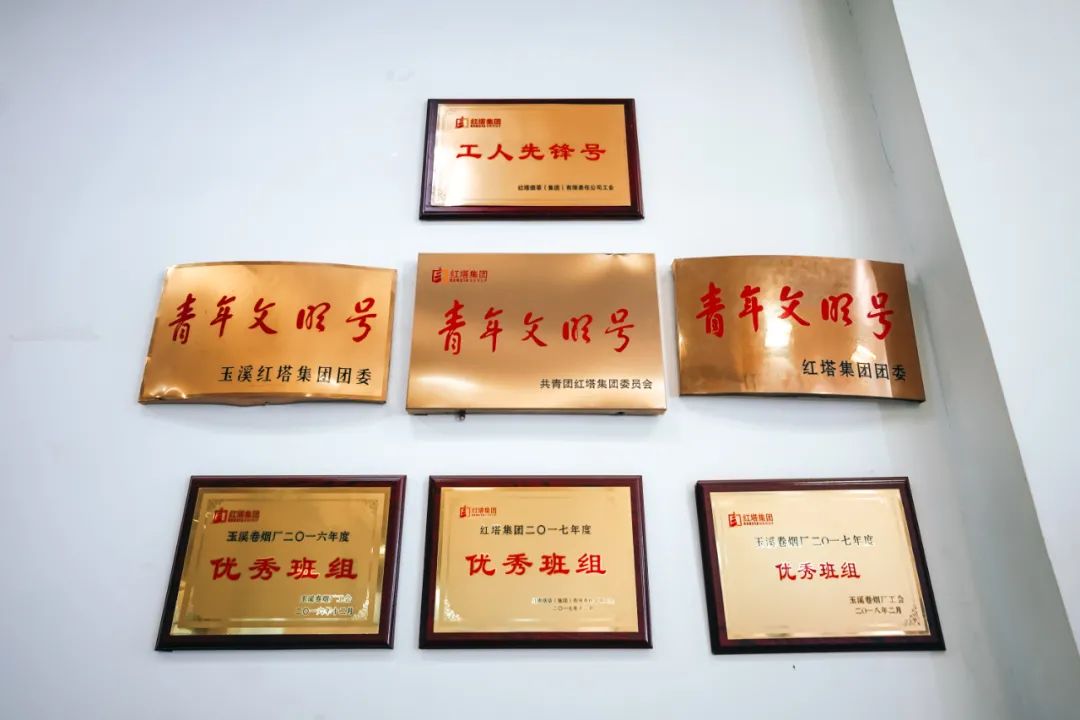 红塔集团
HONGTA GROUP
工人先锋号
红塔烟草（集团）有限责任公司工会
青年文明号
玉溪红塔集团团委
红塔集团
HONGTA GROUP
青年文明号
共青团红塔集团委员会
青年文明号
红塔集团团委
红塔集团
HONGTA GROUP
玉溪卷烟厂二〇一六年度
优秀班组
玉溪卷烟厂工会
二〇一六年十二月
红塔集团
HONGTA GROUP
红塔集团二〇一七年度
优秀班组
红塔集团
HONGTA GROUP
玉溪卷烟厂二〇一七年度
优秀班组
玉溪卷烟厂工会
二〇一八年二月